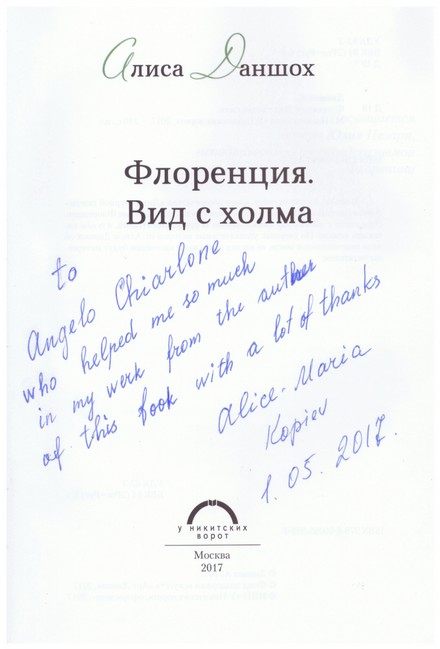 Алиса Даншох
Флоренция.
Вид с холма
to
Angelo Chiarlone
who helped me so much
in my work from the auther
of this book with a lot of thanks
Alice-Maria
Kopiev
1.05.2017.
у никитских
ворот
Москва
2017